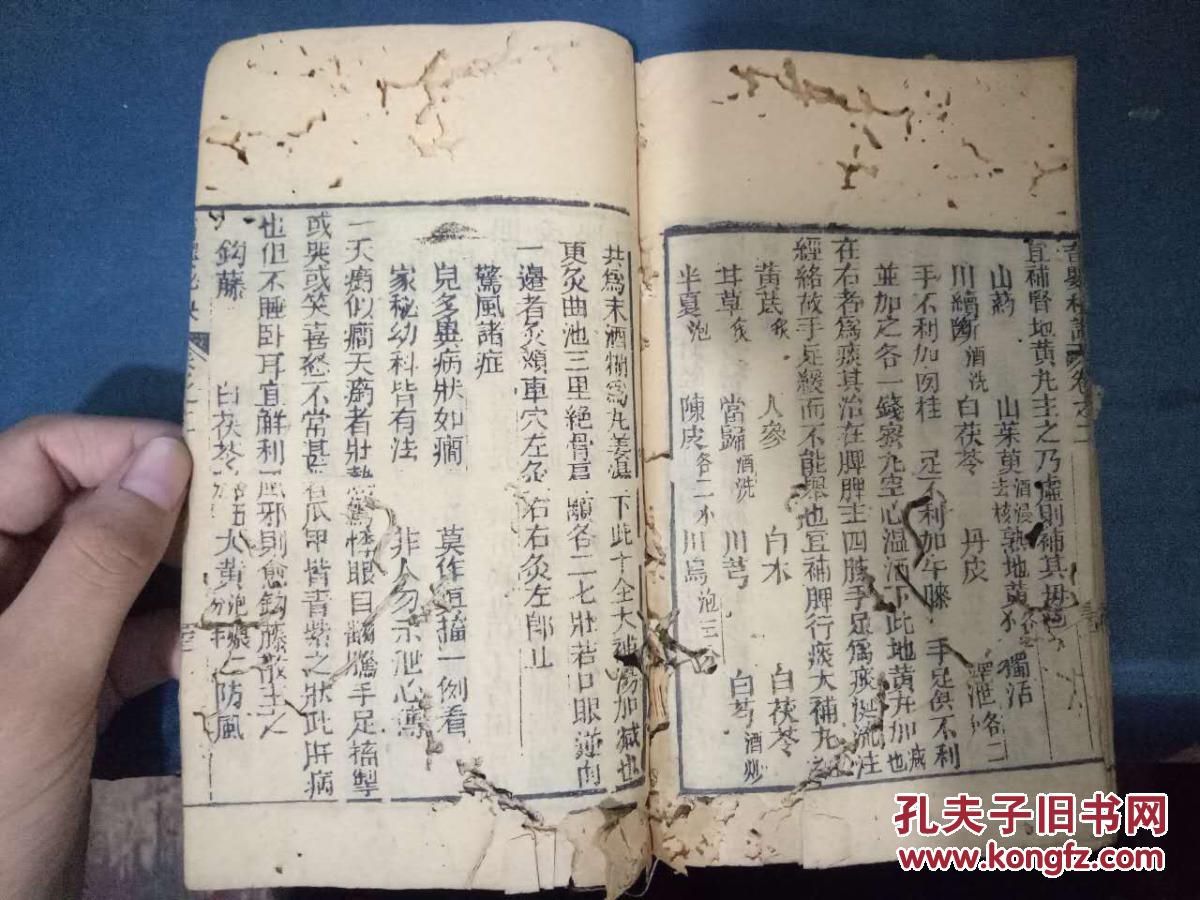 宜補腎地黃九主之乃虛則補其母
山藥 山茱萸去核酒浸 熟地黃 獨活
川續斷酒洗 白茯苓 丹皮 澤泄各二
手不利加肉桂 足不利加牛膝 手足俱不利
並加之各一錢蜜九空心溫酒下此地黃九加減也
在右者為痰其治在脾脾主四肢手足為痰涎流注
經絡故手足緩而不能舉也宜補脾行痰大補九之
黃茋炙 人參 白朮 白茯苓
甘草炙 當歸酒洗 川芎 白芍酒炒
半夏泡 陳皮各二 川烏泡三分
共為末酒糊為丸姜湯下此十全大補湯加減也
更灸曲池三里絕骨肩顒各二七壯若口眼逆向
一邊者灸頰車穴左灸右右灸左郎止
驚風諸症
兒多異病狀如癇 莫作徊搐一例看
家秘幼科皆有法 非人勿示泄心
一天瘹似癇天瘹者壯熱驚悸眼目翻騰手足搐掣
或哭或笑喜怒不常甚者爪甲皆青紫之狀此肝病
也但不睡卧耳宜解利風邪則愈鈎藤散主之
鈎藤 白茯苓 大黃泡 防風
孔夫子旧书网
www.kongfz.com